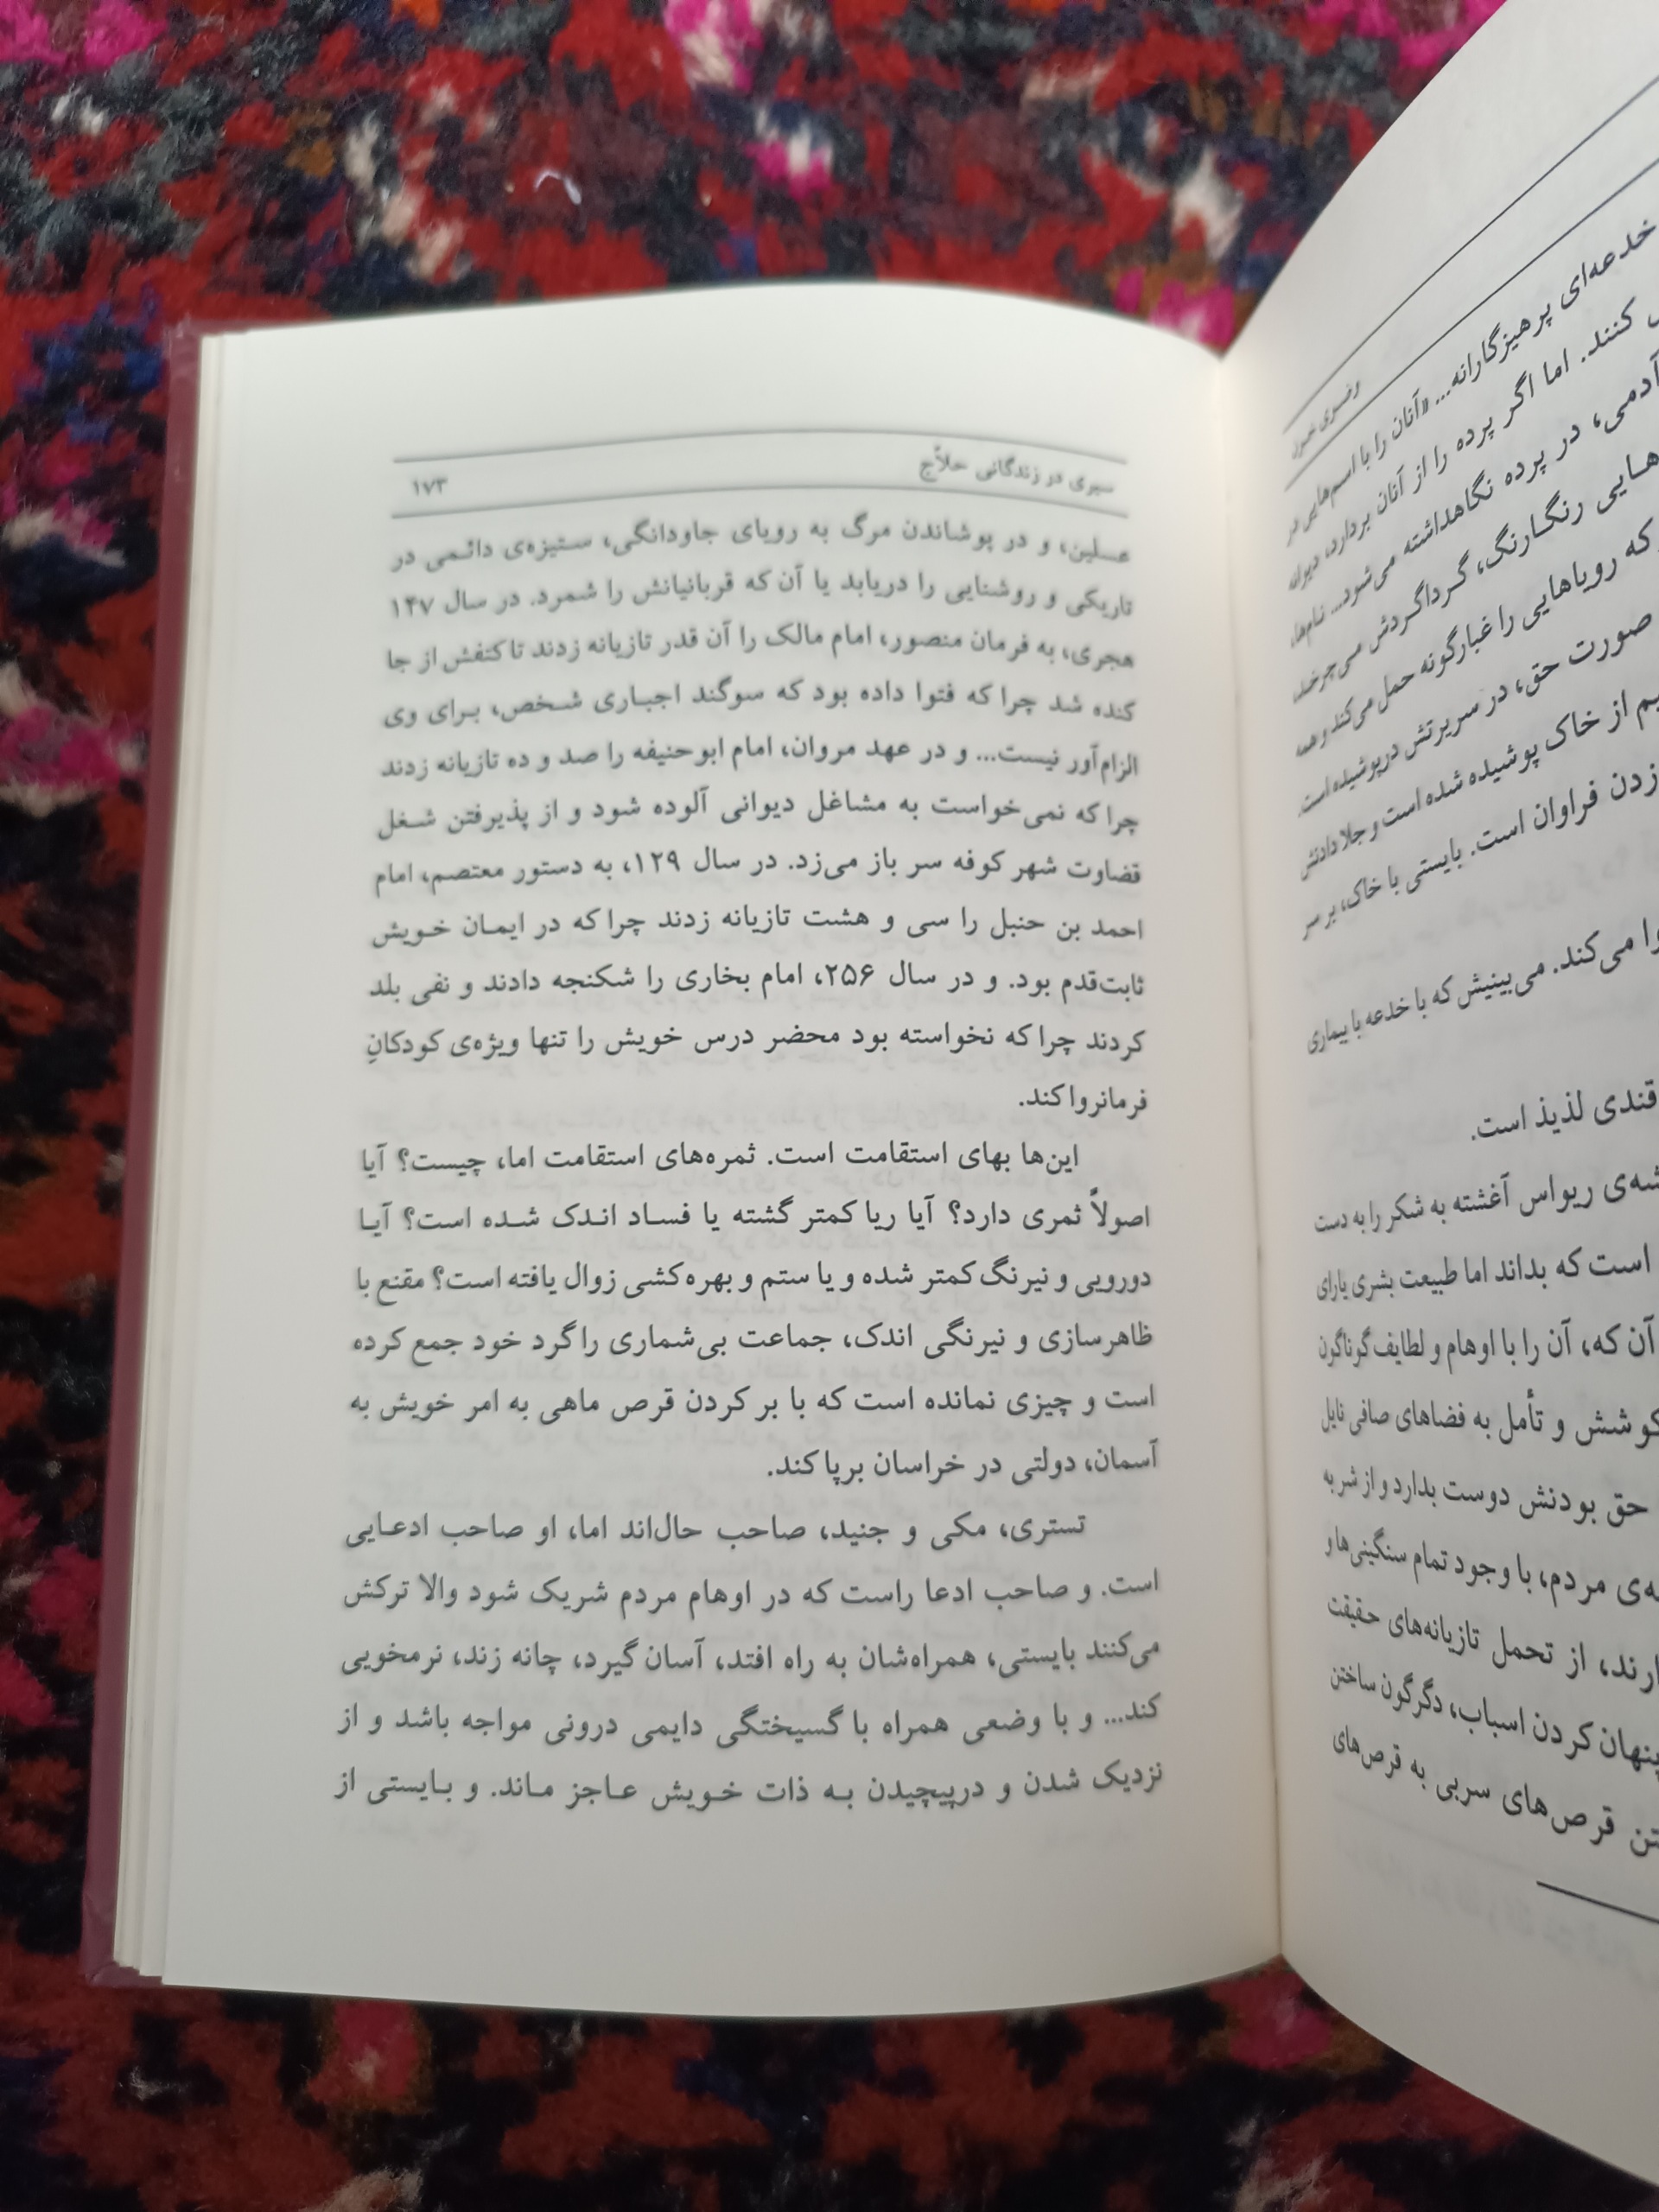 خدعه‌ای پرهیزگارانه... «آنان را با اسم‌هایی در
کنند. اما اگر پرده را از آنان بردارد، دیوانه
آدمی، در پرده نگاهداشته می‌شود... نام‌ها،
هایی رنگارنگ، گرداگردش می‌چرخند،
که رویاهایی را غبارگونه حمل می‌کند و همه
صورت حق، در سریرتش درپوشیده است.
از خاک پوشیده شده است و جلا دادنش
زدن فراوان است. بایستی با خاک، بر سر
می‌کند. می‌بینیش که با خدعه با بیماری
قندی لذیذ است.
ریواس آغشته به شکر را به دست
است که بداند اما طبیعت بشری یارای
آن که، آن را با اوهام و لطایف گوناگون
کوشش و تأمل به فضاهای صافی نایل
حق بودنش دوست بدارد و از شر به
مردم، با وجود تمام سنگینی‌ها و
از تحمل تازیانه‌های حقیقت
پنهان کردن اسباب، دگرگون ساختن
قرص‌های سربی به قرص‌های
سیری در زندگانی حلاّج ۱۷۳
عسلین، و در پوشاندن مرگ به رویای جاودانگی، ستیزه‌ی دائمی در
تاریکی و روشنایی را دریابد یا آن که قربانیانش را شمرد. در سال ۱۴۷
هجری، به فرمان منصور، امام مالک را آن قدر تازیانه زدند تا کتفش از جا
کنده شد چرا که فتوا داده بود که سوگند اجباری شخص، برای وی
الزام‌آور نیست... و در عهد مروان، امام ابوحنیفه را صد و ده تازیانه زدند
چرا که نمی‌خواست به مشاغل دیوانی آلوده شود و از پذیرفتن شغل
قضاوت شهر کوفه سر باز می‌زد. در سال ۱۲۹، به دستور معتصم، امام
احمد بن حنبل را سی و هشت تازیانه زدند چرا که در ایمان خویش
ثابت‌قدم بود. و در سال ۲۵۶، امام بخاری را شکنجه دادند و نفی بلد
کردند چرا که نخواسته بود محضر درس خویش را تنها ویژه‌ی کودکانِ
فرمانروا کند.
این‌ها بهای استقامت است. ثمره‌های استقامت اما، چیست؟ آیا
اصولاً ثمری دارد؟ آیا ریا کمتر گشته یا فساد اندک شده است؟ آیا
دورویی و نیرنگ کمتر شده و یا ستم و بهره‌کشی زوال یافته است؟ مقنع با
ظاهرسازی و نیرنگی اندک، جماعت بی‌شماری را گرد خود جمع کرده
است و چیزی نمانده است که با بر کردن قرص ماهی به امر خویش به
آسمان، دولتی در خراسان برپا کند.
تستری، مکی و جنید، صاحب حال‌اند اما، او صاحب ادعایی
است. و صاحب ادعا راست که در اوهام مردم شریک شود والا ترکش
می‌کنند بایستی، همراه‌شان به راه افتد، آسان گیرد، چانه زند، نرمخویی
کند... و با وضعی همراه با گسیختگی دایمی درونی مواجه باشد و از
نزدیک شدن و درپیچیدن به ذات خویش عاجز ماند. و بایستی از